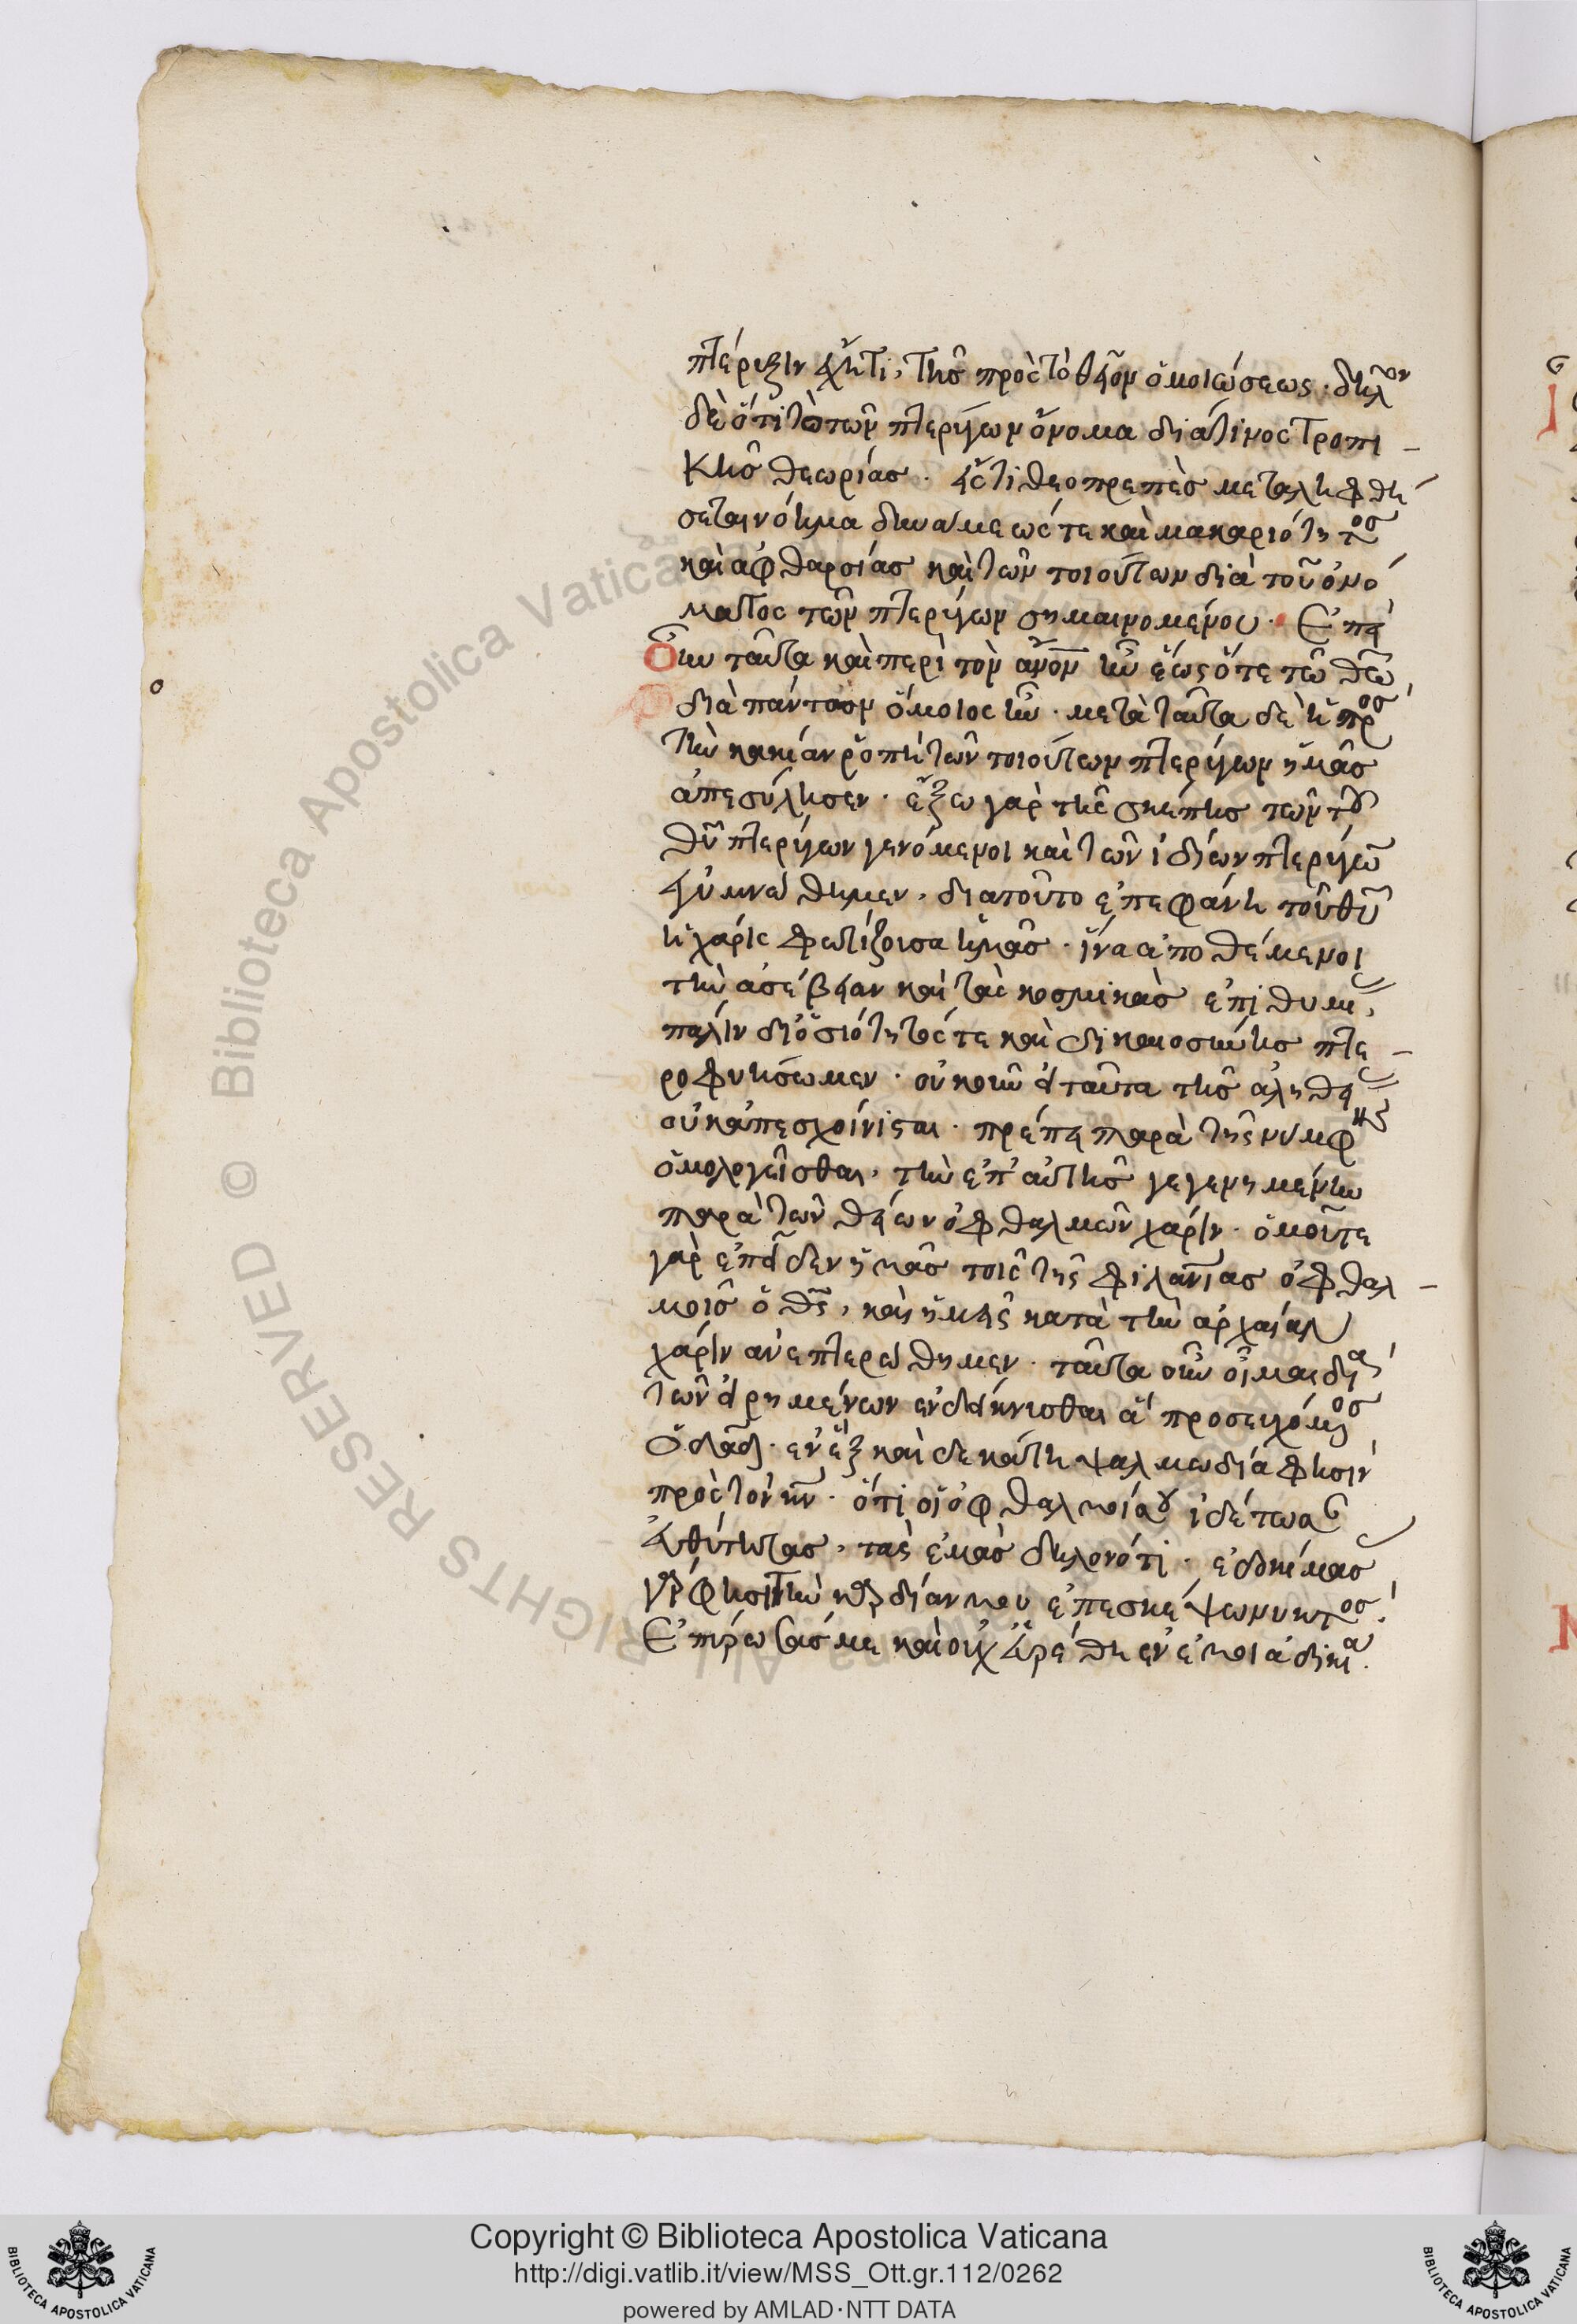 πτέρυξιν ἔχητι, τῆς πρὸς τὸ θεῖον ὁμοιώσεως. δῆλον
δὲ ὅτι τὸ τῶν πτερύγων ὄνομα διά τινος τροπι
κῆς θεωρίας. ἔς τι θεοπρεπὲς μεταληφθή
σεται νόημα δυνάμεώς τε καὶ μακαριότητος
καὶ ἀφθαρσίας καὶ τῶν τοιούτων διὰ τοῦ ὀνό
ματος τῶν πτερύγων σημαινομένου. Ἐπεὶ
οὖν ταῦτα καὶ περὶ τὸν ἄνον ἦν ἕως ὅτε τῶ θεῶ
διὰ πάντων ὅμοιος ἦν. μετὰ ταῦτα δὲ ἡ πρὸς
τὴν κακίαν ῥοπὴ τῶν τοιούτων πτερύγων ἡμᾶς
ἀπεσύλησεν. ἔξω γὰρ τῆς σκέπης τῶν τοῦ
θυ πτερύγων γενόμενοι καὶ τῶν ἰδίων πτερύγων
ἐγυμνώθημεν. διατοῦτο ἐπεφάνη τοῦ θυ
ἡ χάρις φωτίζουσα ἡμᾶς. ἵνα ἀποθέμενοι
τὴν ἀσέβειαν καὶ τὰς κοσμικὰς ἐπιθυμίας,
πάλιν δι ὁσιότητός τε καὶ δικαιοσύνης πτε
ροφυήσωμεν. οὐκοῦν εἰ ταῦτα τῆς ἀληθείας
οὐκ ἀπεσχοίνισται. πρέπει παρὰ τῆς νύμφης
ὁμολογεῖσθαι, τὴν ἐπ αὐτῆς γεγενημένην
παρὰ τῶν θείων ὀφθαλμῶν χάριν. ὁμοῦ τε
γὰρ ἐπεῖδεν ἡμᾶς τοῖς τῆς φιλανίας ὀφθαλ
μοῖς ὁ θς, καὶ ἡμεῖς κατὰ τὴν ἀρχαίαν
χάριν ἀνεπτερώθημεν. ταῦτα οὖν οἶμαι διὰ
τῶν εἰρημένων ἐνδείκνυσθαι ἃ προσευχόμενος
ὁ δαδ. ἐν ἓξ καὶ δεκάτη ψαλμωδία φησὶν
πρὸς τὸν κν. ὅτι οἱ ὀφθαλμοί σου ἰδέτωσαν
εὐθύτητας, τὰς ἐμὰς δηλονότι. ἐδοκίμασας
γάρ φησι τὴν καρδίαν μου ἐπεσκέψω νυκτός.
Ἐπύρωσάς με καὶ οὐχ εὑρέθη ἐν ἐμοὶ ἀδικία.
Copyright © Biblioteca Apostolica Vaticana
http://digi.vatlib.it/view/MSS_Ott.gr.112/0262
powered by AMLAD·NTT DATA